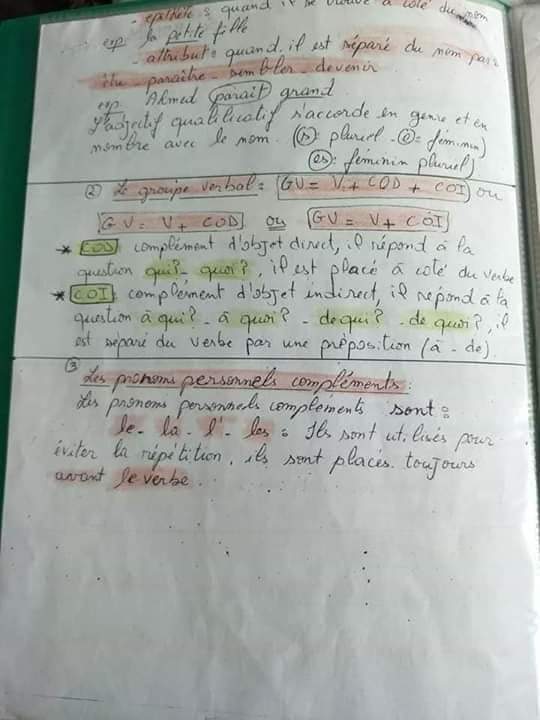 - épithète : quand il se trouve à côté du nom
exp: la petite fille
- attribut : quand il est séparé du nom par:
être - paraître - sembler - devenir
exp. Ahmed paraît grand
L'adjectif qualificatif s'accorde en genre et en
nombre avec le nom. (s): pluriel - (e) = féminin)
(es): féminin pluriel)
② Le groupe verbal : GV = V + COD + COI ou
GV = V + COD ou GV = V + COI
* COD: complément d'objet direct, il répond à la
question qui? - quoi?, il est placé à coté du verbe
* COI: complément d'objet indirect, il répond à la
question à qui? - à quoi? - de qui? - de quoi?, il
est séparé du verbe par une préposition (à - de).
③
Les pronoms personnels compléments :
Les pronoms personnels compléments sont :
le - la - l' - les : Ils sont utilisés pour
éviter la répétition, ils sont placés toujours
avant le verbe.